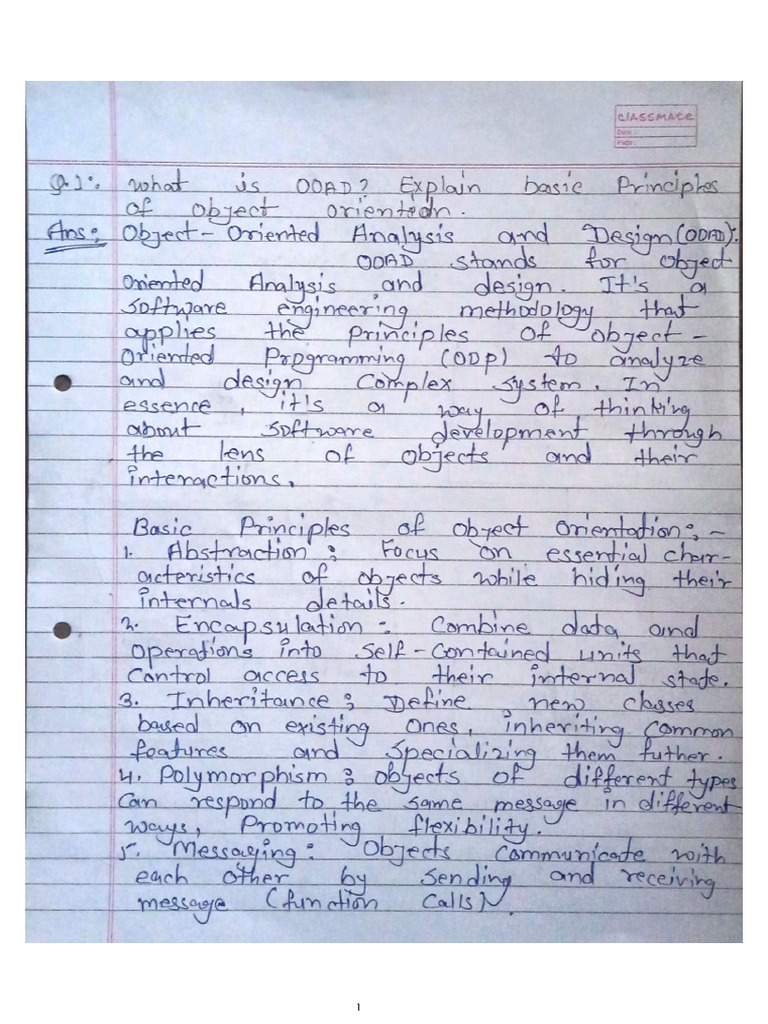 CLASSMATE
Date :
Page :
Q.1:. What is OOAD? Explain basic Principles
of object orientedn.
Ans: Object-Oriented Analysis and Design (OOAD):
OOAD stands for object
Oriented Analysis and design. It's a
software engineering methodology that
applies the principles of object-
oriented Programming (OOP) to analyze
and design complex system. In
essence, it's a way of thinking
about software development through
the lens of objects and their
interactions.
Basic Principles of object orientation:-
1. Abstraction : Focus on essential char-
acteristics of objects while hiding their
internals details.
2. Encapsulation : Combine data and
operations into self-contained units that
control access to their internal state.
3. Inheritance : Define new classes
based on existing ones, inheriting common
features and specializing them futher.
4. Polymorphism : objects of different types
can respond to the same message in different
ways, Promoting flexibility.
5. Messaging : Objects communicate with
each other by sending and receiving
message (function calls).
1